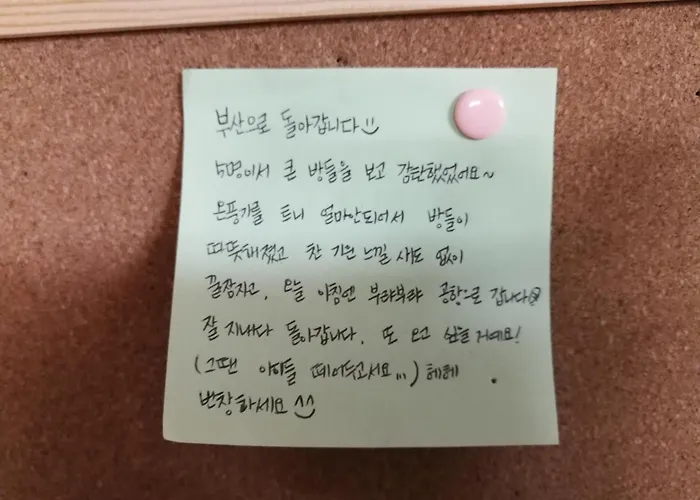 부산으로 돌아갑니다
5명이서 큰 방들을 보고 감탄했었어요~
온풍기를 트니 얼마안되어서 방들이
따뜻해졌고 찬 기운 느낄 새도 없이
꿀잠자고, 오늘 아침엔 부랴부랴 공항으로 갑니다
잘 지내다 돌아갑니다. 또 오고 싶을거예요!
(그땐 아이들 떼어두고서요,,,) 헤헤
번창하세요 ^^